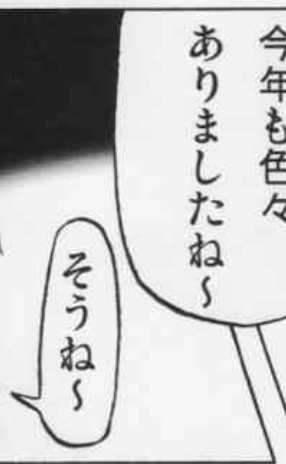 今年も色々
ありましたね～
そうね～